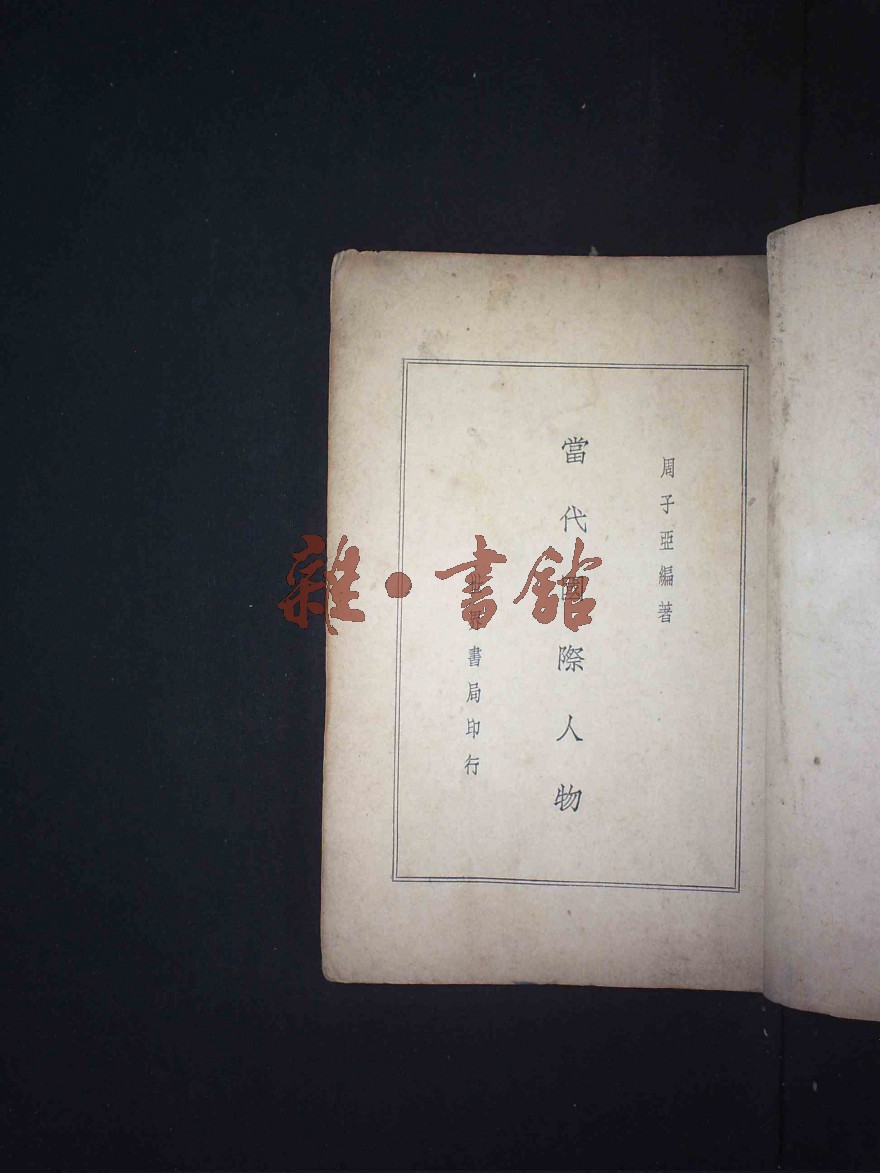 周子亞編著
當代國際人物
世界書局印行
雜·書館